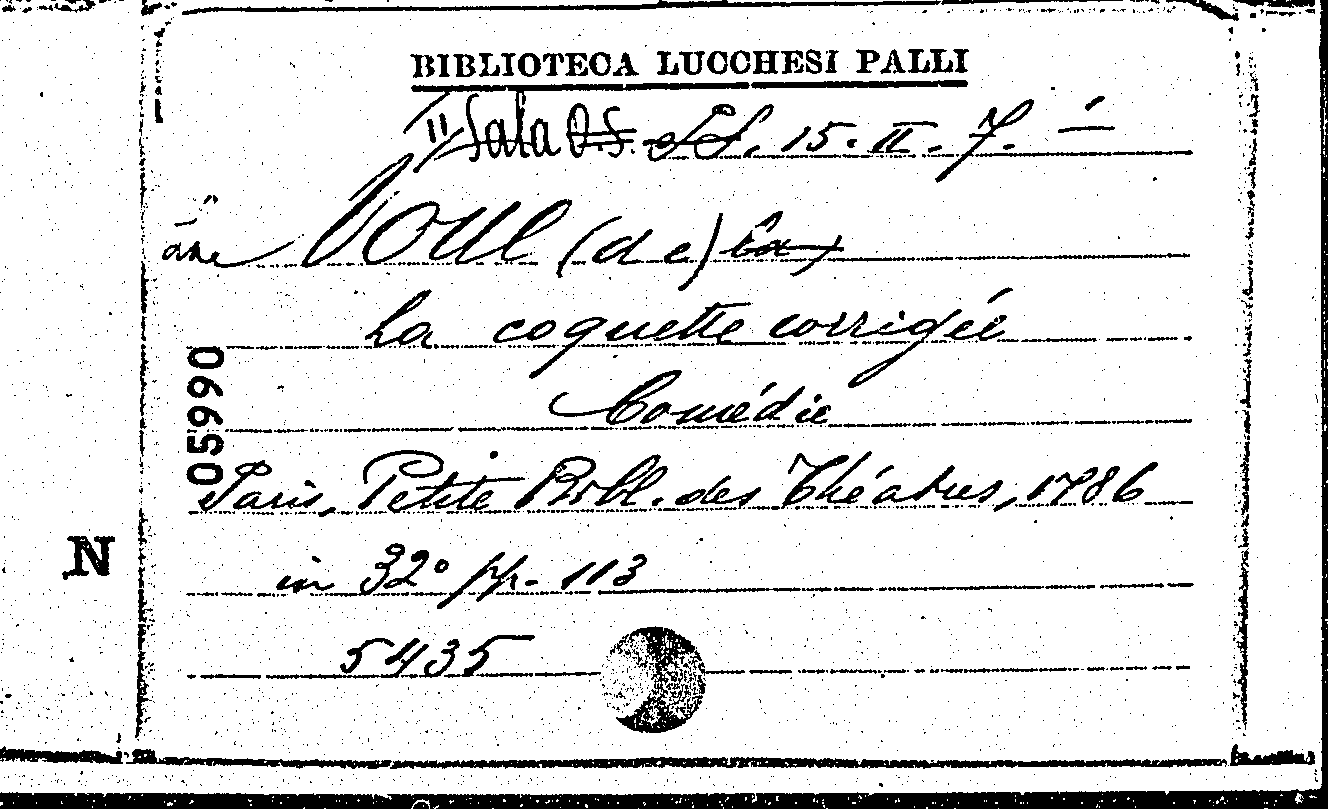 BIBLIOTECA LUCCHESI PALLI
II Sala 15. II. 7.
Noue (de) La
La coquette corrigée
Comédie
Paris, Petite Bibl. des Théatres, 1786
in 32° pp. 113
5435
05990
N